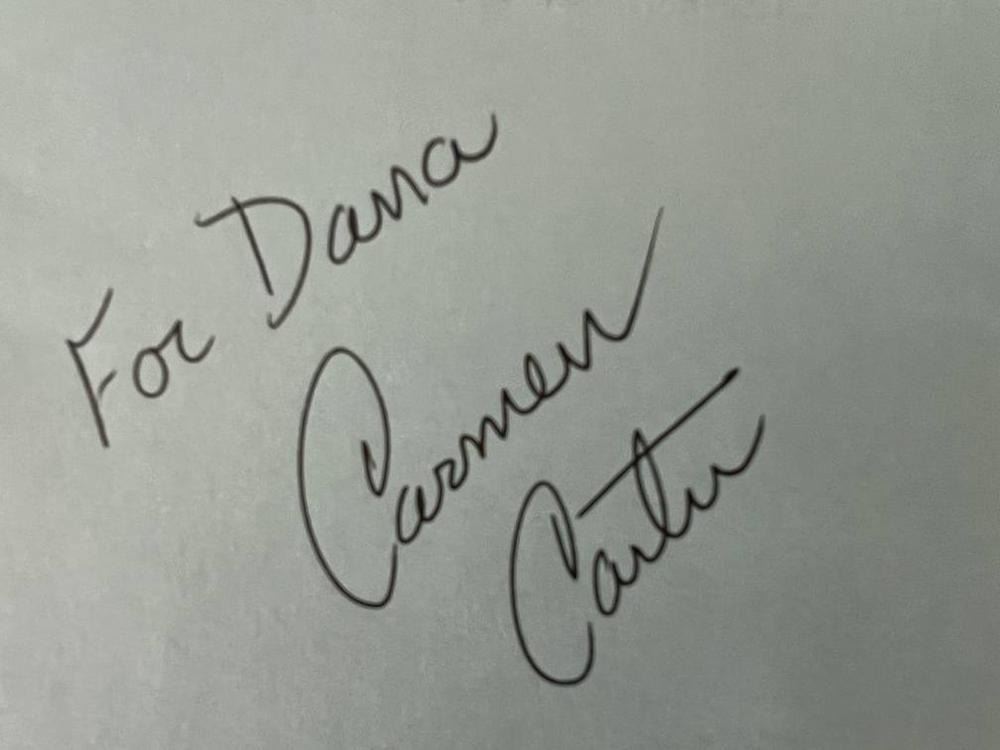 For Dana
Carmen
Carter